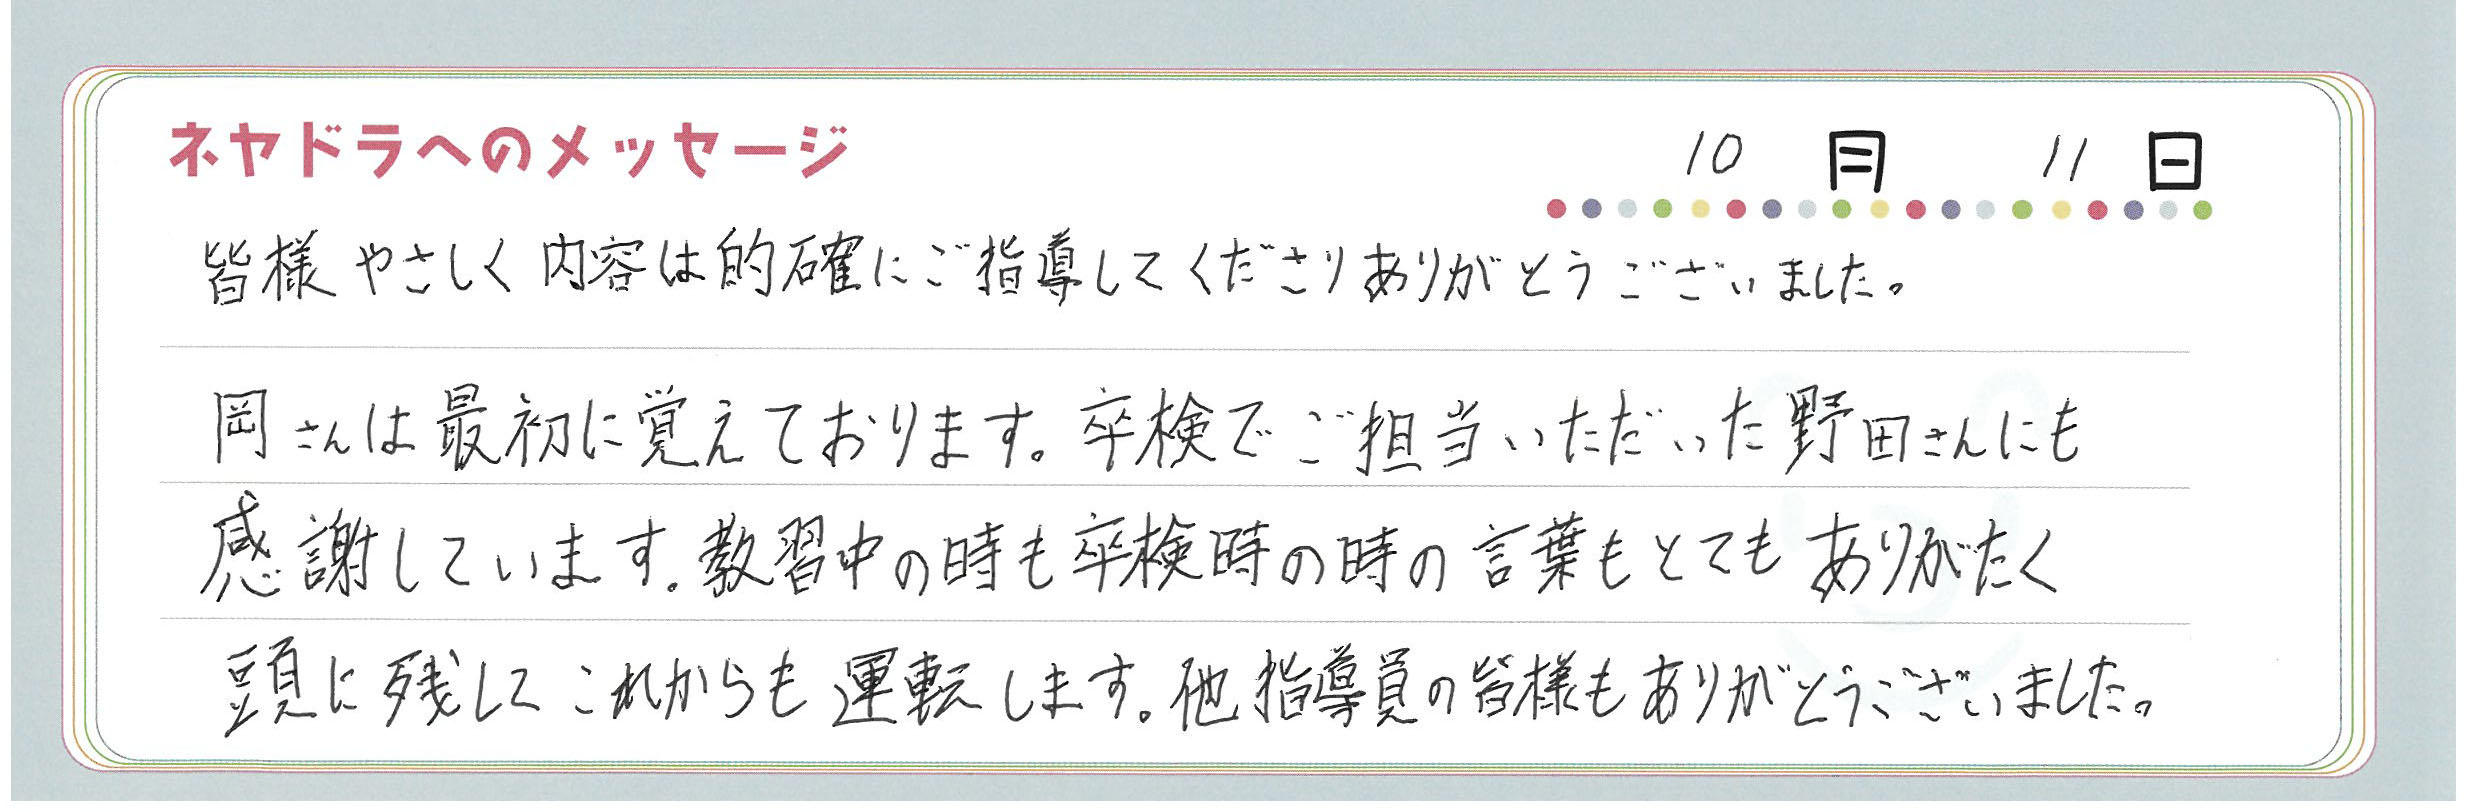 ネヤドラへのメッセージ
10月 11日
皆様やさしく内容は的確にご指導してくださりありがとうございました。
岡さんは最初に覚えております。卒検でご担当いただいった野田さんにも
感謝しています。教習中の時も卒検時の時の言葉もとてもありがたく
頭に残してこれからも運転します。他指導員の皆様もありがとうございました。